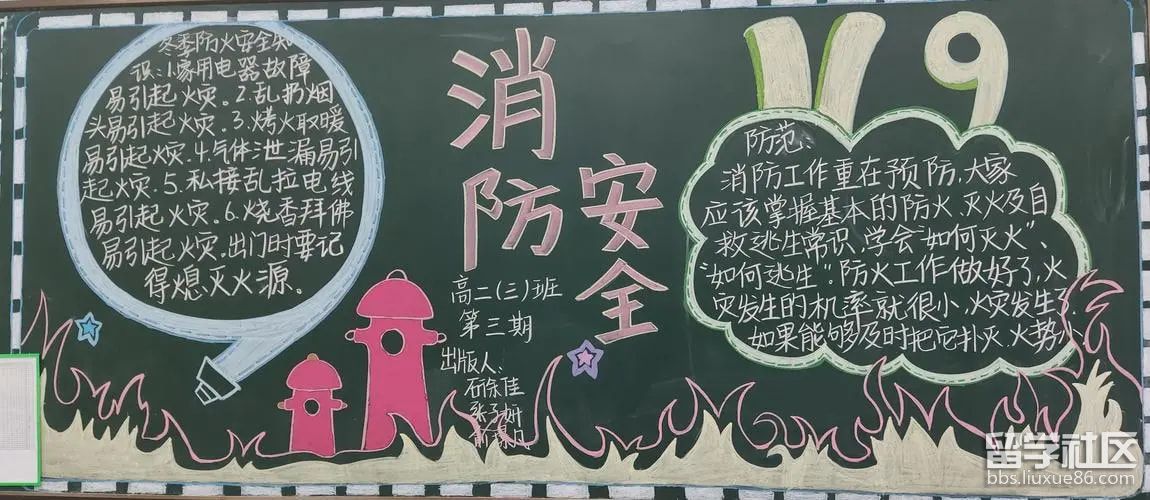 冬季防火安全知
识:1.家用电器故障
易引起火灾。2.乱扔烟
头易引起火灾.3.烤火取暖
易引起火灾.4.气体泄漏易引
起火灾.5.私接乱拉电线
易引起火灾。6.烧香拜佛
易引起火灾.出门时要记
得熄灭火源。
消防
安全
高二(三)班
第三期
出版人:
119
防范:
消防工作重在预防,大家
应该掌握基本的防火、灭火及自
救逃生常识,学会"如何灭火"、
"如何逃生".防火工作做好了,火
灾发生的机率就很小,火灾发生了,
如果能够及时把它扑灭.火势小
留学社区
bbs.liuxue86.com